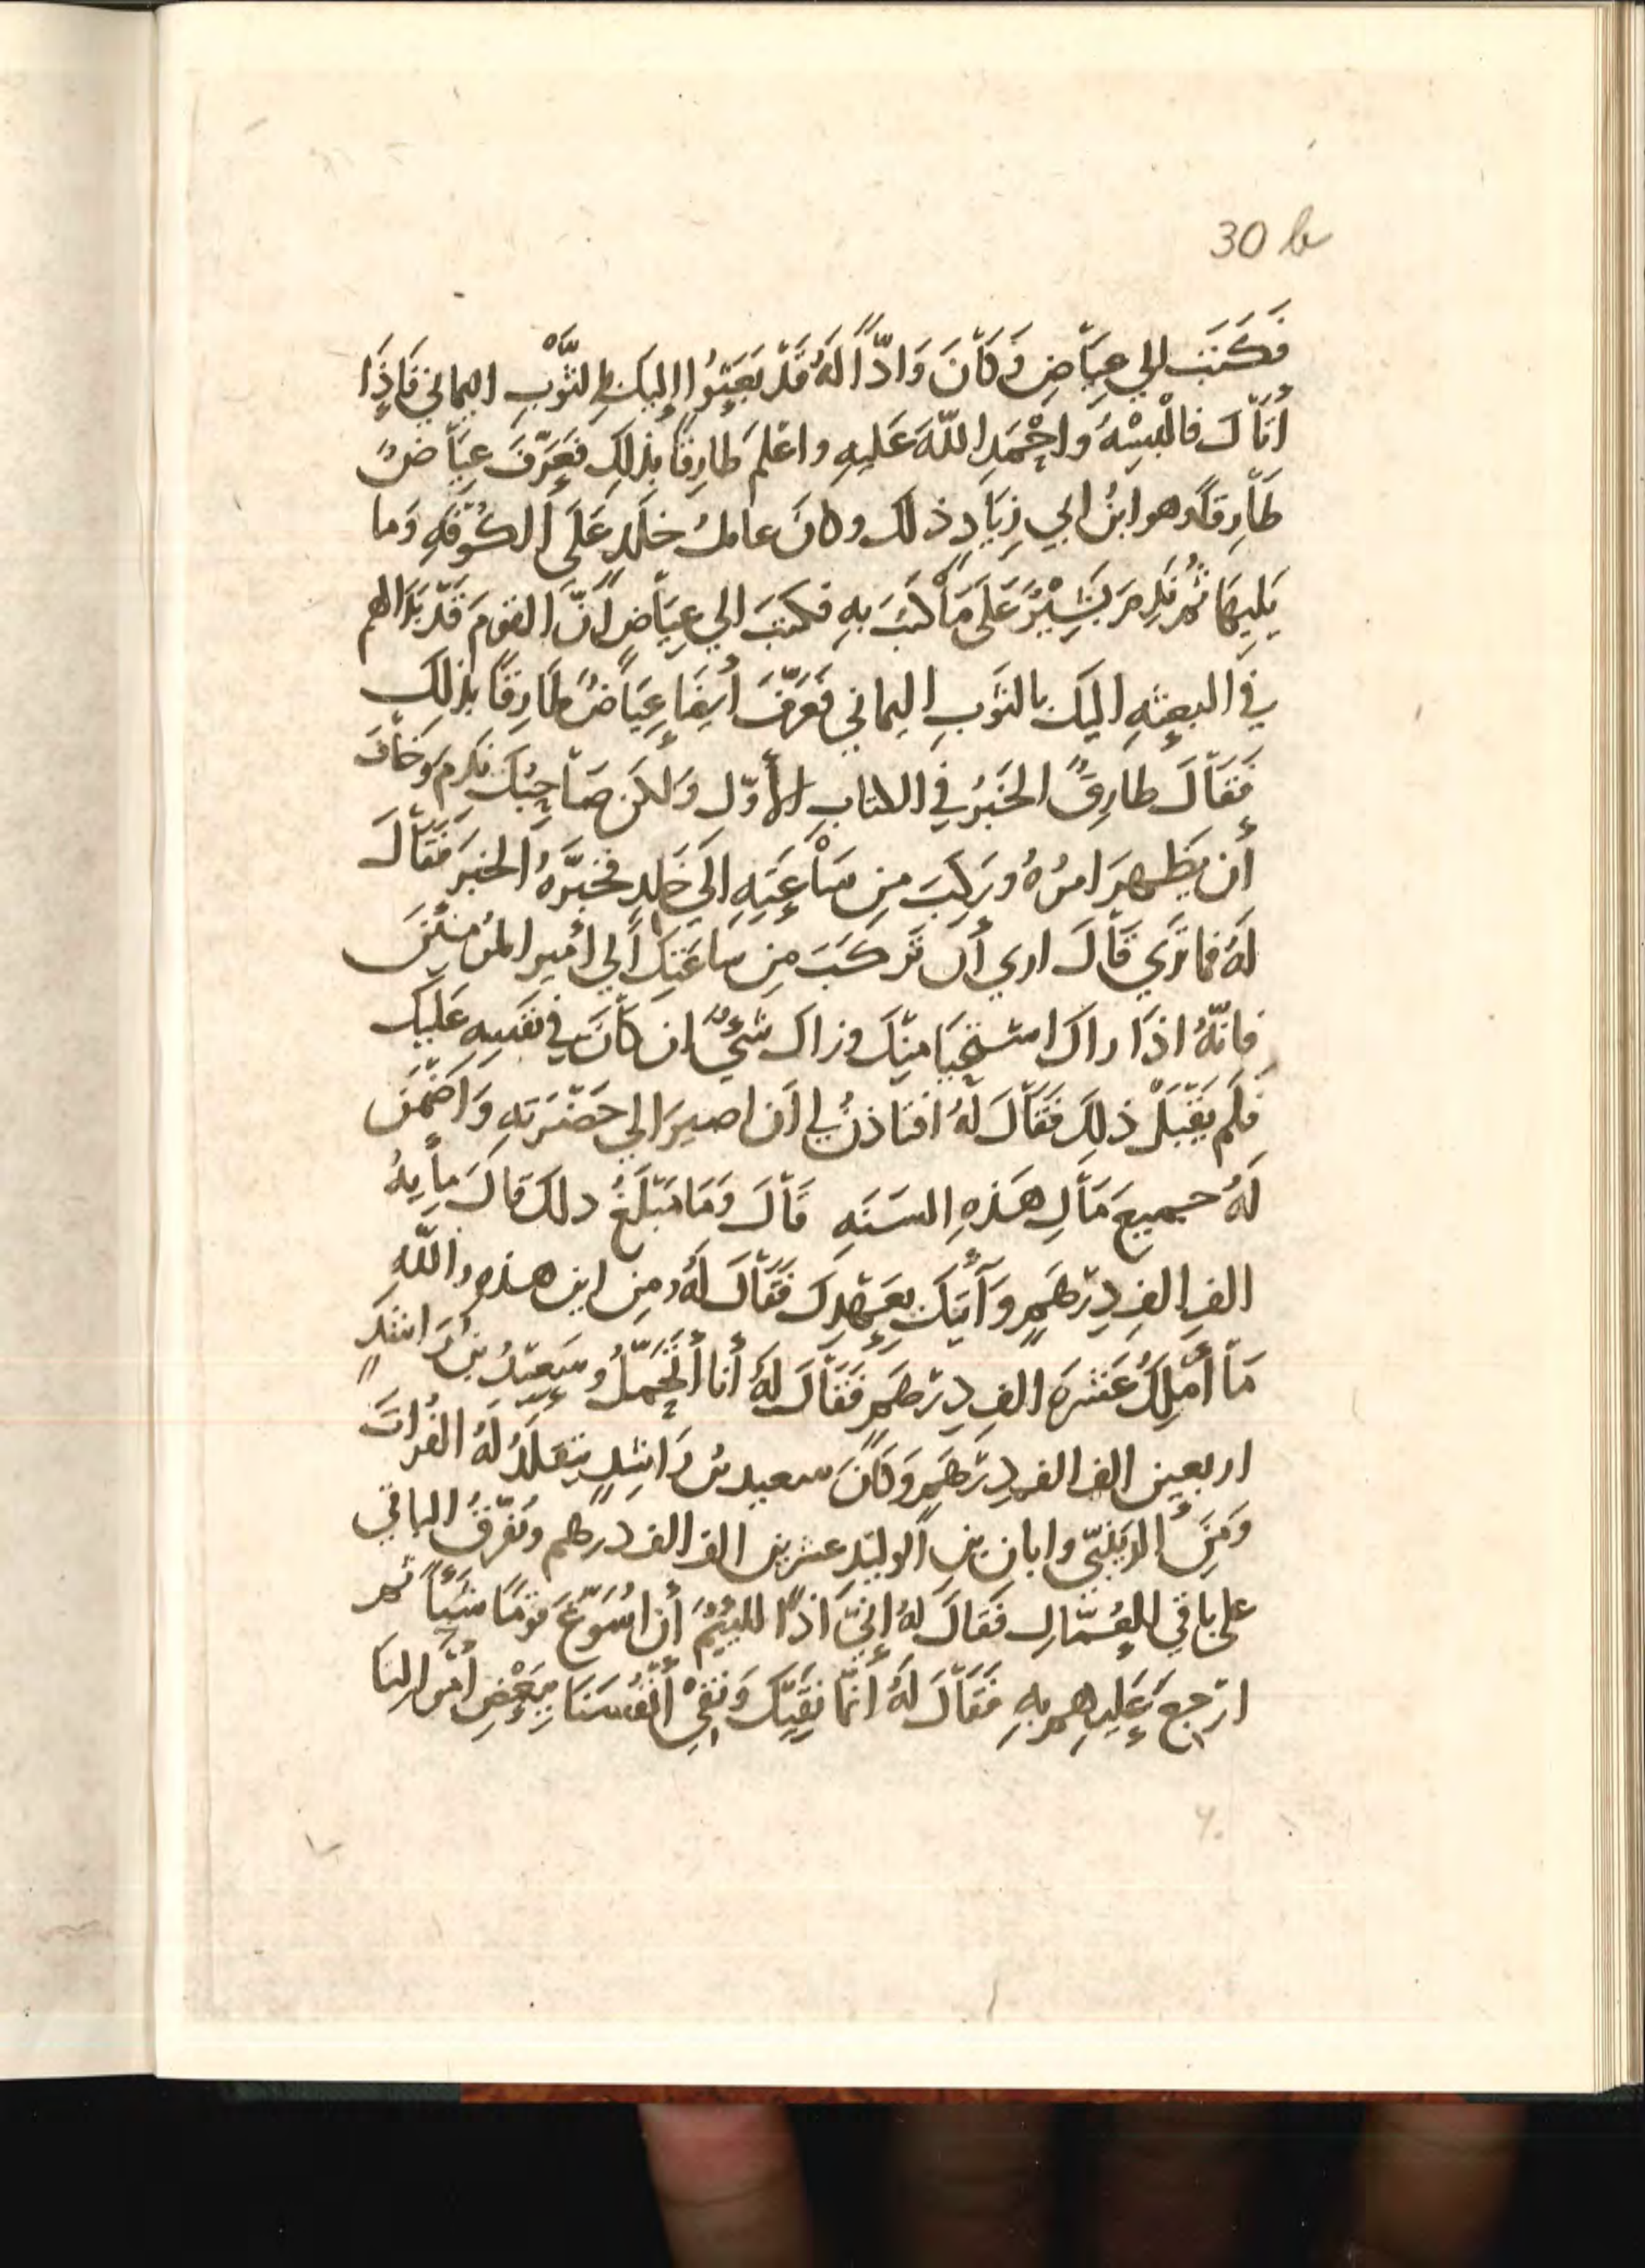 30 b
فَكَتَبَ الي عِيَاضٍ وَكَانَ وَادًّا لَهُ قَدْ بَعَثُوا إليك بِالثَّوْبِ اليماني فَاذَا
اتَاكَ فالْبِسْهُ واحْمَدِ اللّهَ عَلَيهِ واعْلم طَارِقًا بذلِكَ فَعَرَّفَ عِيَاضٌ
طَارِقًا وهو ابنُ ابي زِيَادٍ ذلك وكانَ عاملُ خلَدٍ عَلَى الكُوْفَهِ وَما
يَلِيهَا ثُم نَدِمَ بَشِيْرٌ عَلَى مَا كَتبَ بهِ فكتبَ الي عِيَاضٍ أنَّ القومَ قَدْ بَدَا لهم
في البعثِهِ اليك بالثَوبِ اليماني فَعَرَّفَ أيضَا عِيَاضٌ طَارِقًا بذلِك
فَقَالَ طارِقٌ الخَبَرُ في الكتابِ الأوّل وَلكَن صَاحِبُكَ نَدِم وَخَافَ
أن يَظهرَ امرُهُ ورَكِبَ مِن سَاعَتِهِ الَي خَلدٍ فخبَّرَهُ الخبرَ فَقَالَ
لَهُ فما تَرَي قَالَ اري أن تَركَبَ مِن سَاعَتِكَ الي أمير المؤمنيْنَ
فانّهُ اذَا راك استَحْيَا مِنْكَ وزال شَيءٌ ان كَانَ في نفسِهِ عَلَيكَ
فَلَم يَقْبَلْ ذلِكَ فَقَالَ لَهُ افتاذنُ لي أن اصيرَ الي حَضْرَتِهِ وَاضْمَنَ
لَهُ جميعَ مَالِ هَذهِ السَنَهِ قَالَ وَمَا مَبْلَغُ ذلكَ قالَ مايهُ
الفِ الفِ دِرْهَمٍ وَآتيكَ بِعَهْدِكَ فَقَالَ لَهُ ومِن اين هذه واللّهِ
مَا أمْلِكُ عَشَرَهَ الفِ دِرْهَمٍ فَقَالَ لَهُ أنا أتَحَمَّلُ وسَعِيْدُ بنُ رَاشدٍ
اربعينَ الفَ الفِ دِرْهَمٍ وَكَانَ سعيد بنُ رَاشدٍ يتقلَّدُ لَهُ الفُراتَ
وَمِنَ الزَينَبيّ وابان بن الوليْد عشرين الفَ الف درهم ونُفَرِّقُ الباقي
علي باقي العُمّال فَقَالَ لَهُ إنّي اذًا للئيمٌ أن اُسَوِّغَ قومًا شيئًا ثم
ارْجعَ عَليهم بهِ فَقَالَ لَهُ انّما نَقِيْكَ وَنَقِيْ أنْفُسَنَا بِبَعْضِ أمْوالِنَا